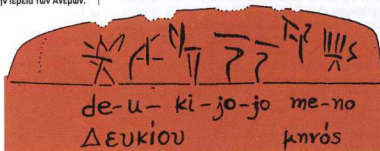 Ιέρεια των Ανέμων.
𐀆𐀄𐀑𐀍𐀍 𐀕𐀜
de-u-ki-jo-jo me-no
Δευκίου μηνός